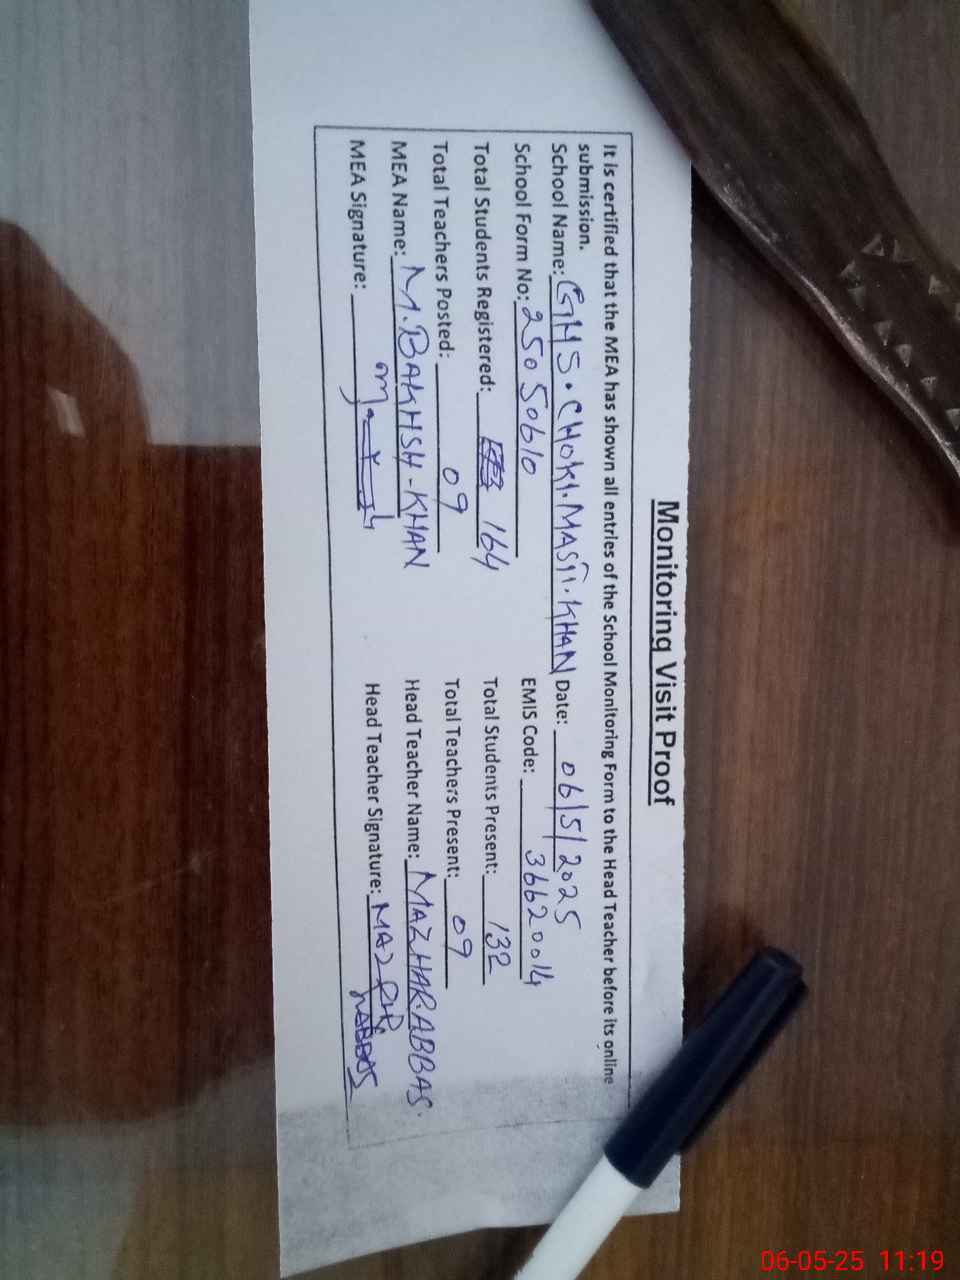 Monitoring Visit Proof
It is certified that the MEA has shown all entries of the School Monitoring Form to the Head Teacher before its online
submission.
School Name: GHS. CHOKI. MASTI. KHAN Date: 06/5/2025
School Form No: 25050610 EMIS Code: 36620014
Total Students Registered: 164 Total Students Present: 132
Total Teachers Posted: 09 Total Teachers Present: 09
MEA Name: M. BAKHSH - KHAN Head Teacher Name: MAZHAR. ABBAS.
MEA Signature: Head Teacher Signature:
06-05-25 11:19